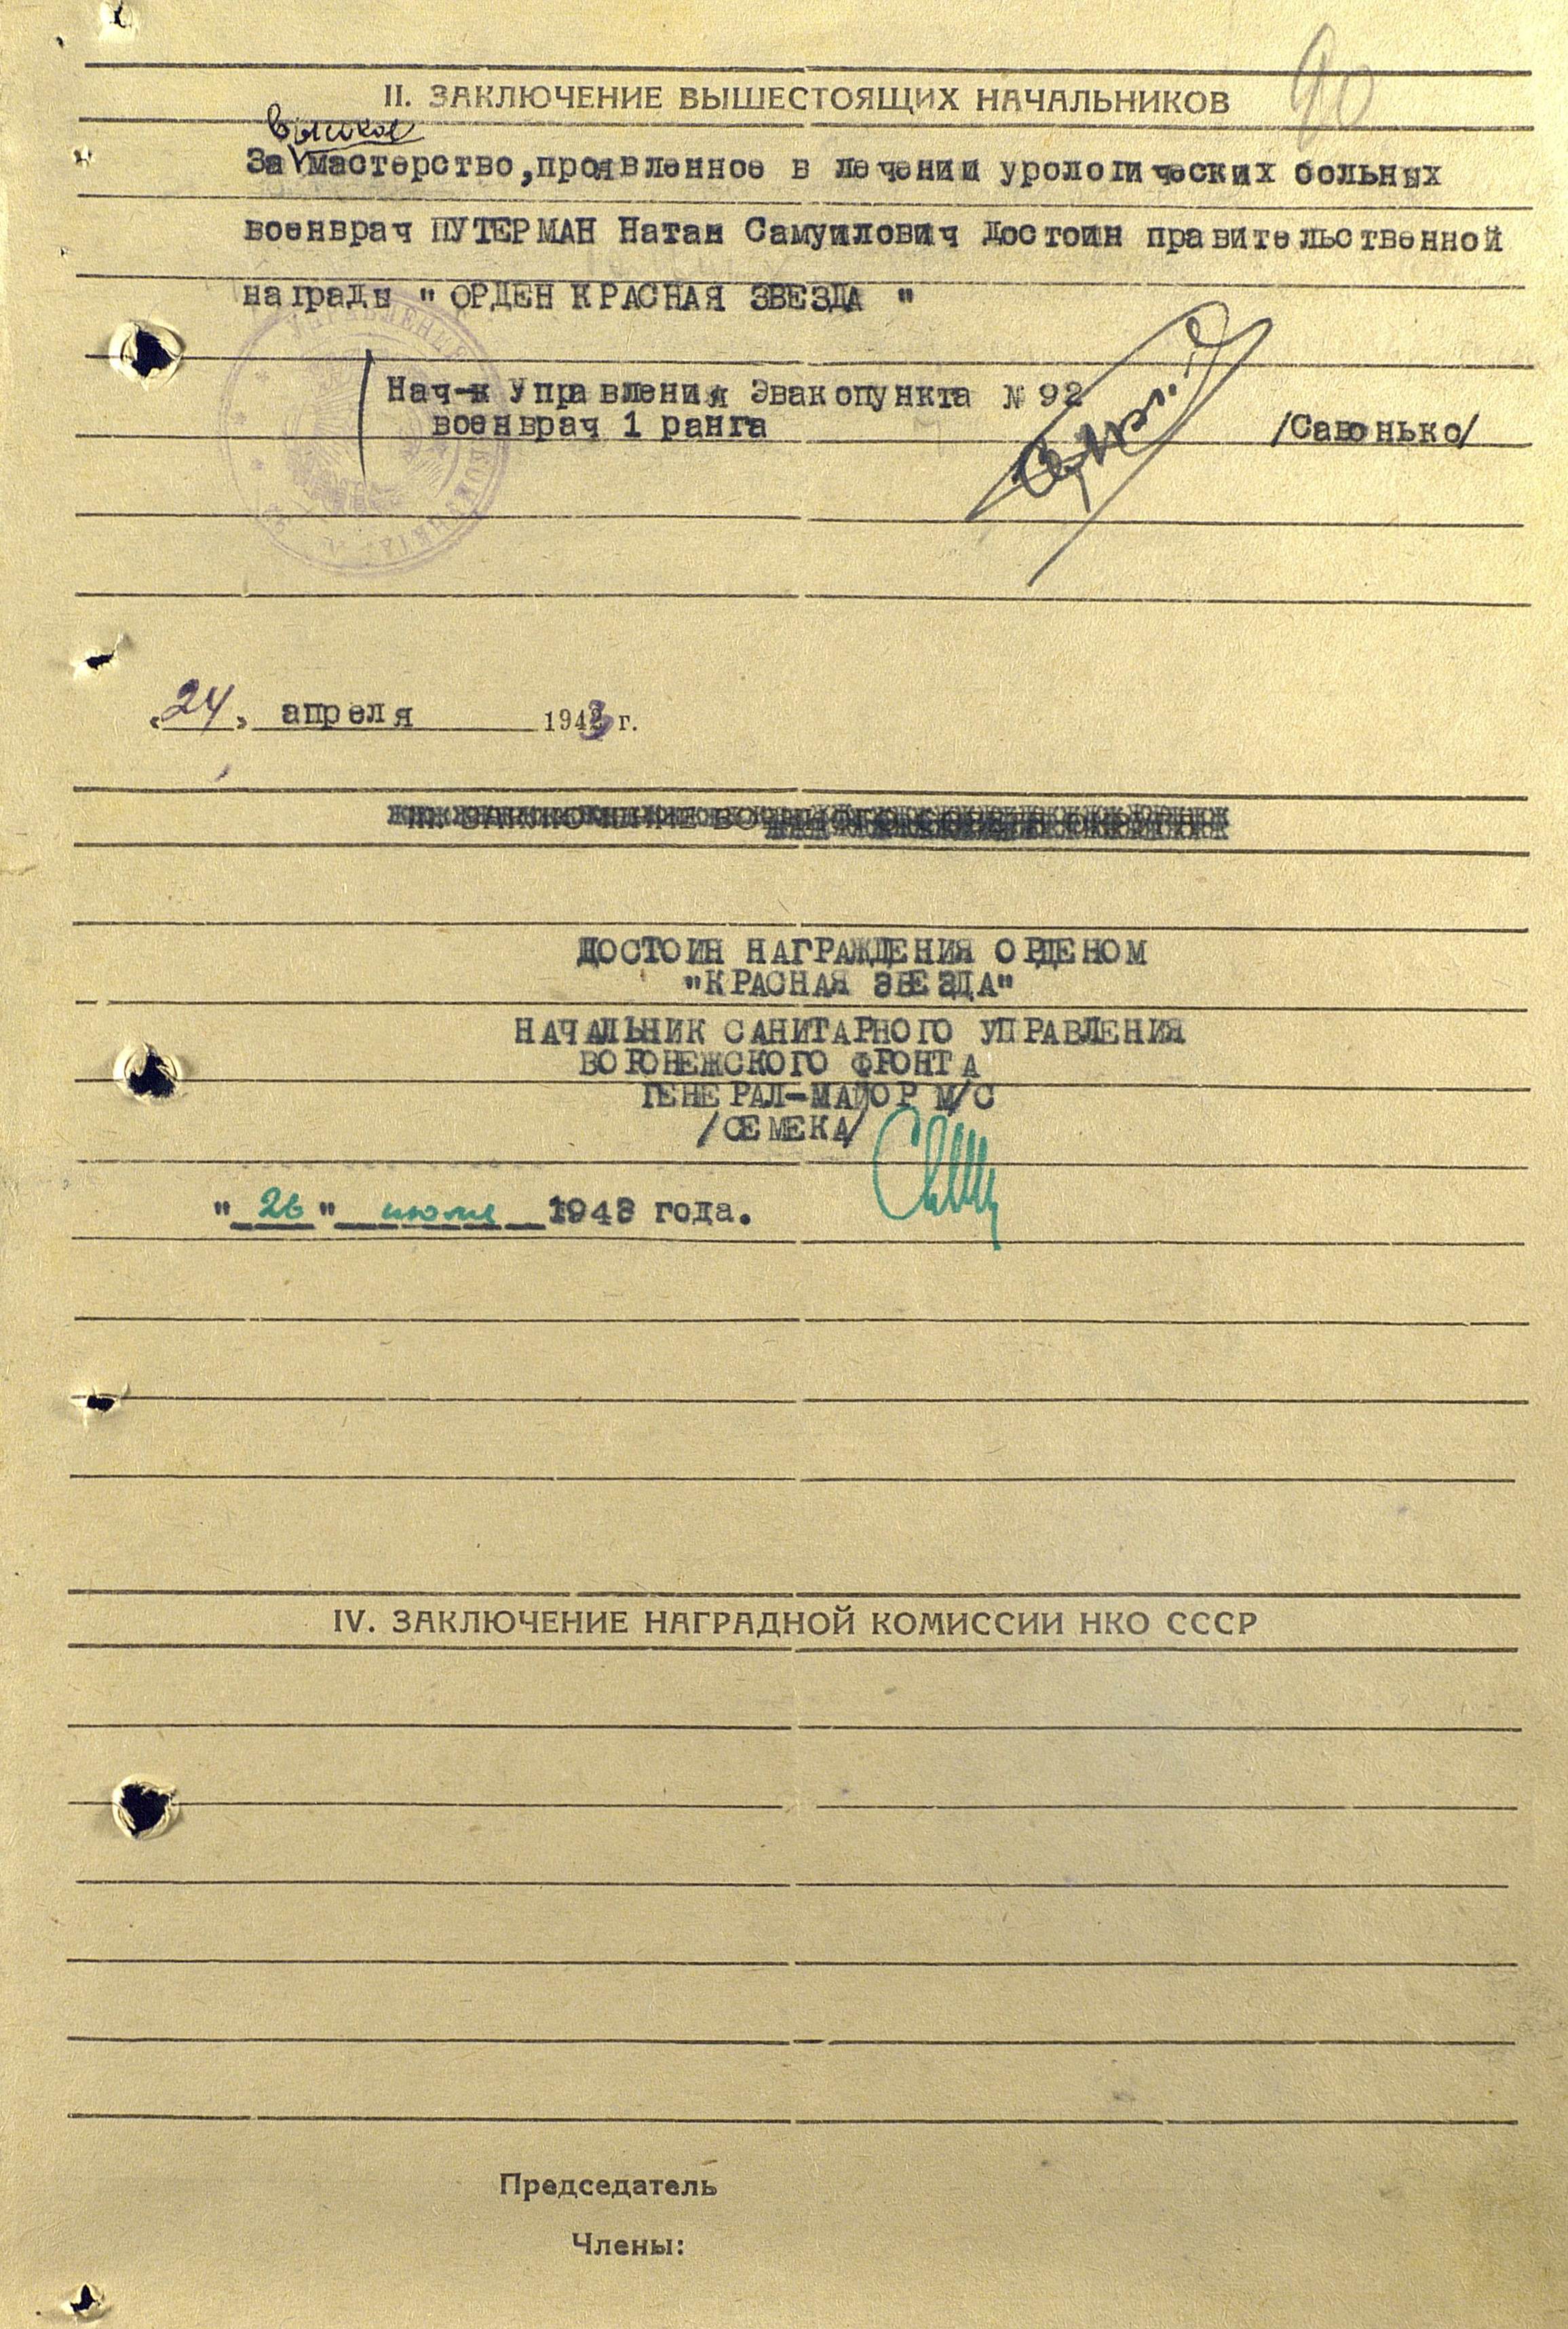 90
II. ЗАКЛЮЧЕНИЕ ВЫШЕСТОЯЩИХ НАЧАЛЬНИКОВ
высокое
За мастерство, проявленное в лечении урологических больных
военврач ПУТЕРМАН Натан Самуилович достоин правительственной
награды " ОРДЕН КРАСНАЯ ЗВЕЗДА "
Нач-к Управления Эвакопункта № 92
военврач 1 ранга /Савонько/
"24" апреля 1943 г.
ДОСТОИН НАГРАЖДЕНИЯ ОРДЕНОМ
"КРАСНАЯ ЗВЕЗДА"
НАЧАЛЬНИК САНИТАРНОГО УПРАВЛЕНИЯ
ВОРОНЕЖСКОГО ФРОНТА
ГЕНЕРАЛ-МАЙОР М/С
/СЕМЕКА/
"26" 1943 года.
IV. ЗАКЛЮЧЕНИЕ НАГРАДНОЙ КОМИССИИ НКО СССР
Председатель
Члены: